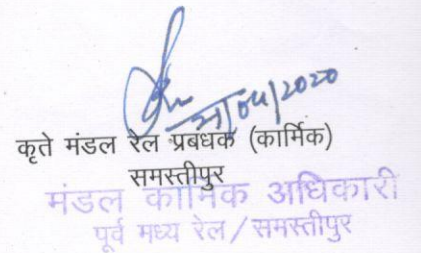 कृते मंडल रेल प्रबंधक (कार्मिक)
समस्तीपुर
मंडल कार्मिक अधिकारी
पूर्व मध्य रेल/समस्तीपुर